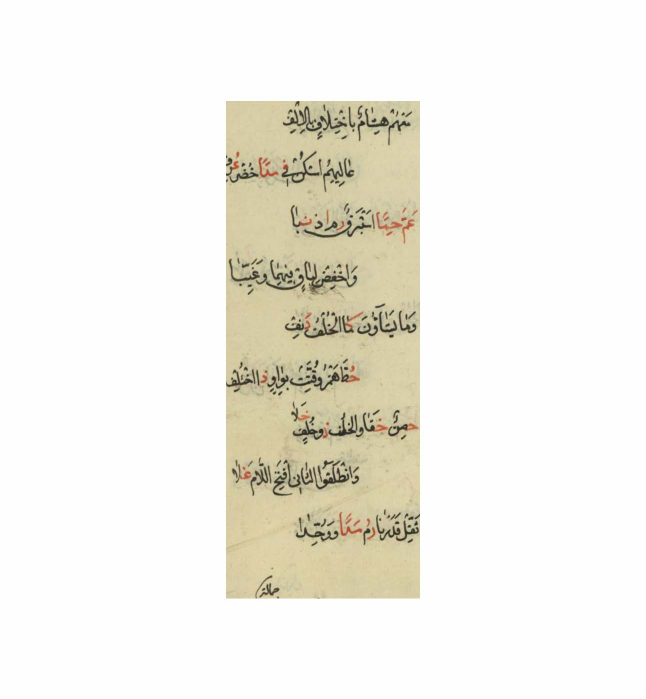 مَعَهُمْ هِشَامٌ بِاخْتِلَافٍ بِالْأَلِفْ
عَالِيهِمُ اسْكُنْ فِي مَدًا خُضْرٌ عُرِفْ
عَمَّ حِمًا اسْتَبْرَقٌ دُمْ إِذْ نَبَا
وَاخْفِضْ لِبَاقٍ فِيهِمَا وَغَيِّبَا
وَمَا يَشَاؤُنَ كَمَا الْخُلْفُ دَنِفْ
حُطْ هَمْزَ وُقِّتَتْ بِوَاوٍ ذَا اخْتُلِفْ
حِصْنٌ خَفَا وَالْخُلْفُ وَخُلْفٍ خَلَا
وَانْطَلِقُوا الثَّانِي افْتَحِ اللَّامَ غَلَا
ثَقِّلْ قَدَرْنَا رُمْ مَدًا وَوَحِّدَا
جمالة